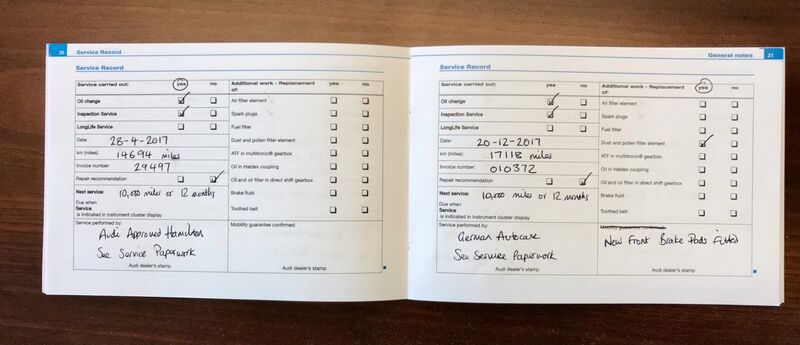 20 Service Record
Service Record
Service carried out: yes no
Oil change
Inspection Service
LongLife Service
Date: 28-4-2017
km (miles): 14694 miles
Invoice number: 29497
Repair recommendation
Next service: 10,000 miles or 12 months
Due when
Service
is indicated in instrument cluster display
Additional work - Replacement of: yes no
Air filter element
Spark plugs
Fuel filter
Dust and pollen filter element
ATF in multitronic® gearbox
Oil in Haldex coupling
Oil and oil filter in direct shift gearbox
Brake fluid
Toothed belt
Service performed by:
Audi Approved Hamilton
See Service Paperwork
Audi dealer's stamp
Mobility guarantee confirmed:
Audi dealer's stamp
General notes 21
Service Record
Service carried out: yes no
Oil change
Inspection Service
LongLife Service
Date: 20-12-2017
km (miles): 17118 miles
Invoice number: 010372
Repair recommendation
Next service: 10,000 miles or 12 months
Due when
Service
is indicated in instrument cluster display
Additional work - Replacement of: yes no
Air filter element
Spark plugs
Fuel filter
Dust and pollen filter element
ATF in multitronic® gearbox
Oil in Haldex coupling
Oil and oil filter in direct shift gearbox
Brake fluid
Toothed belt
Service performed by:
German Autocare
See Service Paperwork
Audi dealer's stamp
Mobility guarantee confirmed:
New Front Brake Pads Fitted
Audi dealer's stamp